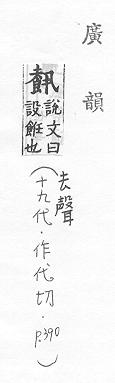 廣韻
說文曰
設飪也
去聲
(十九代．作代切．p.390)